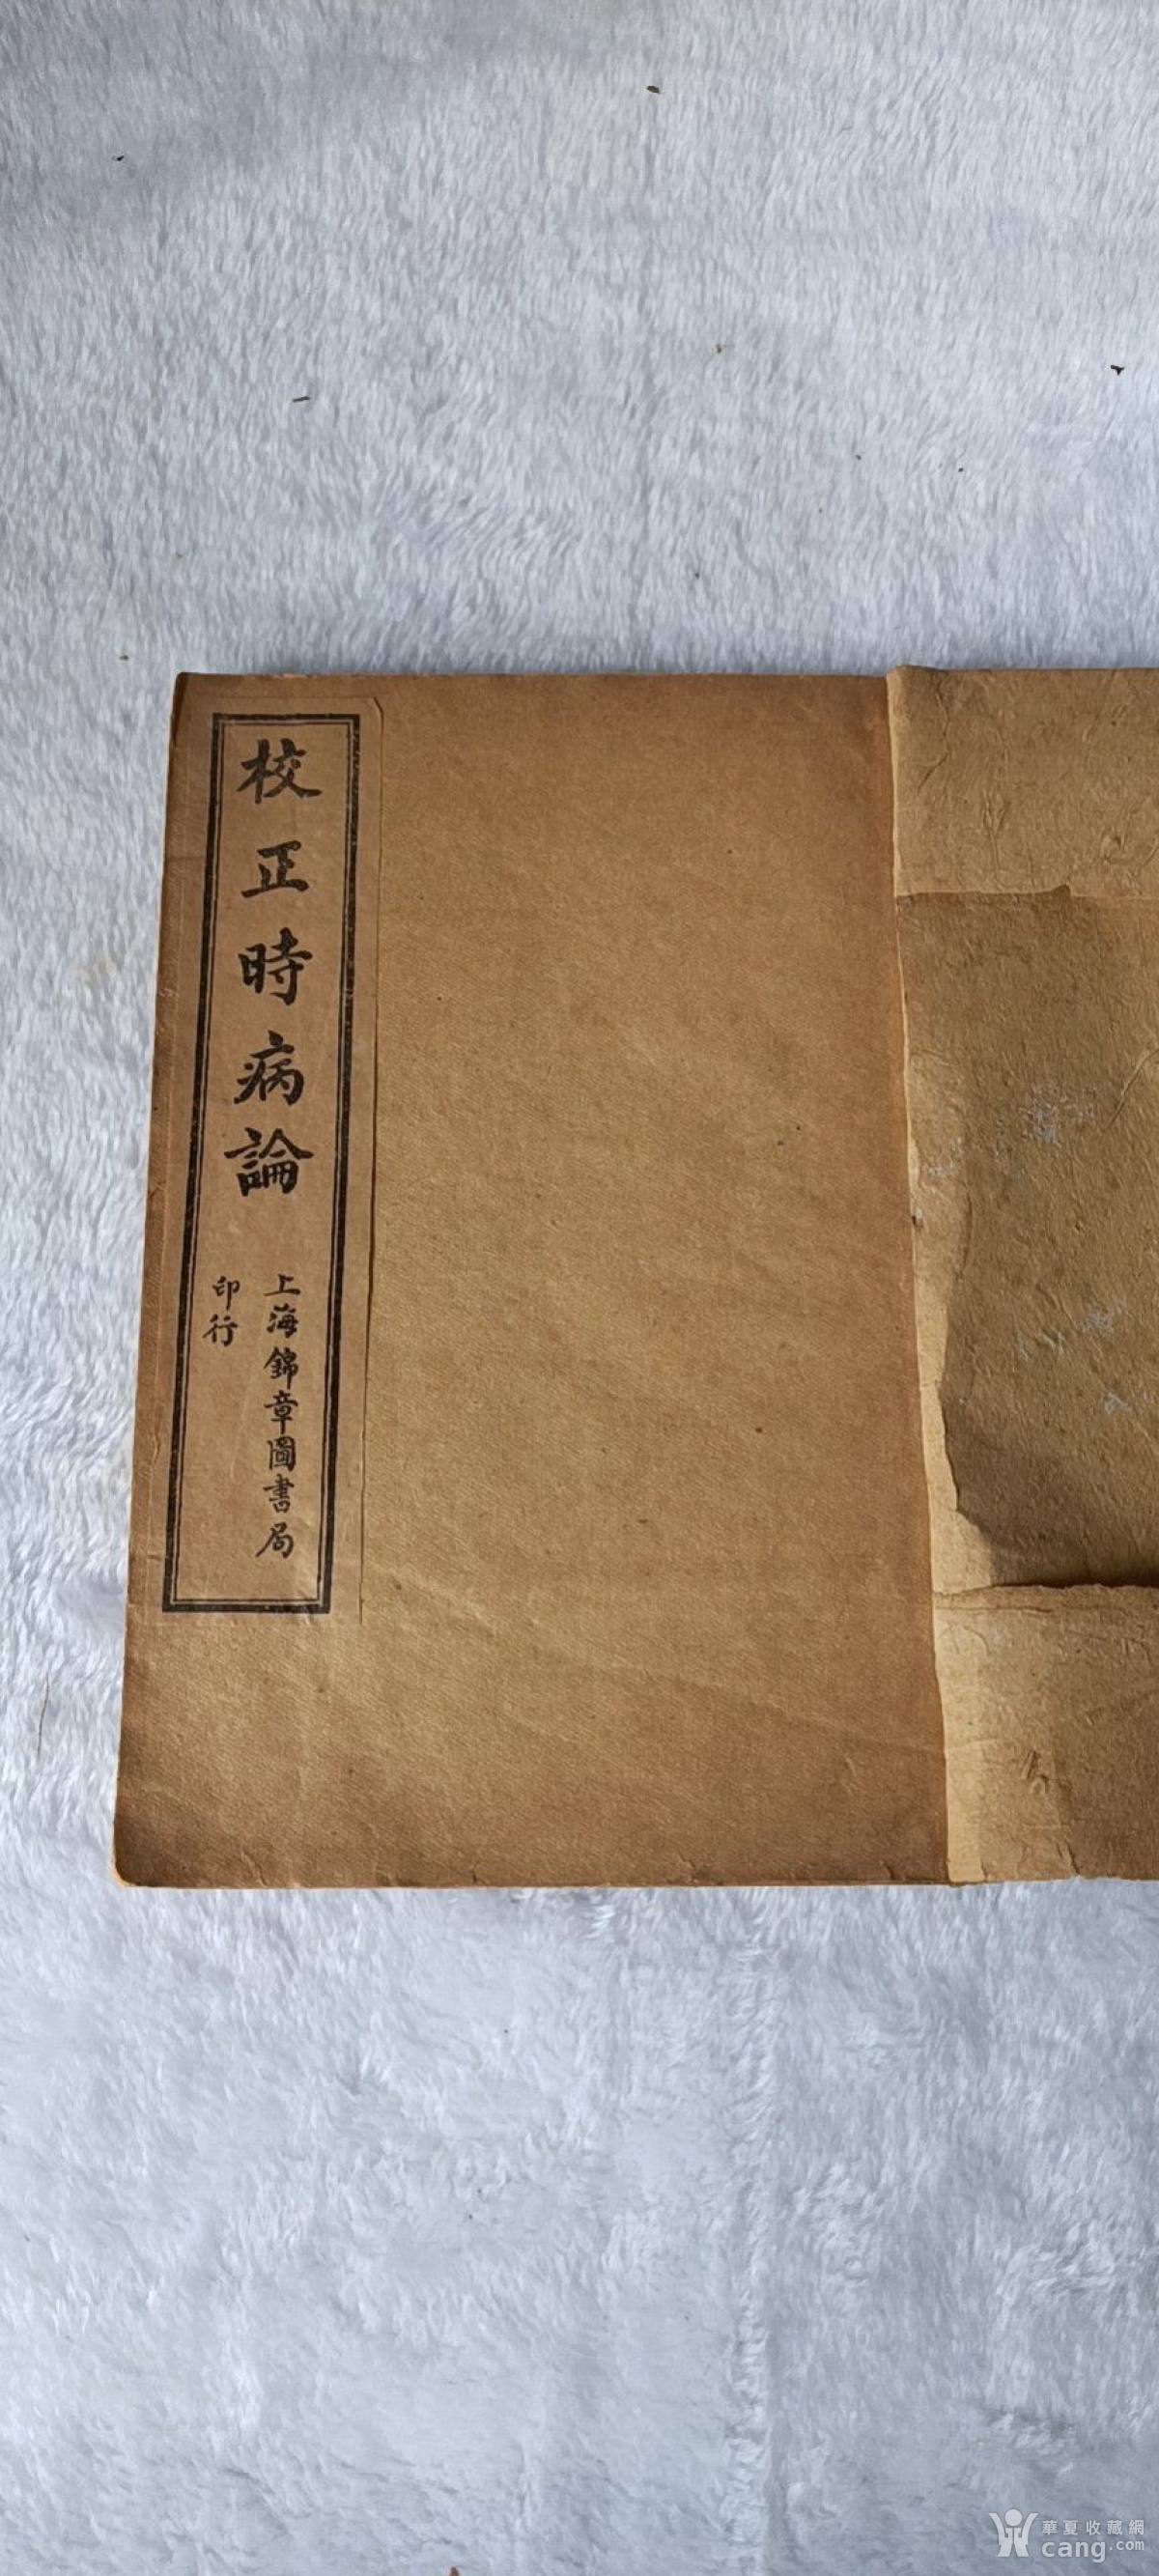 校正時病論
上海錦章圖書局
印行
華夏收藏網
cang.com